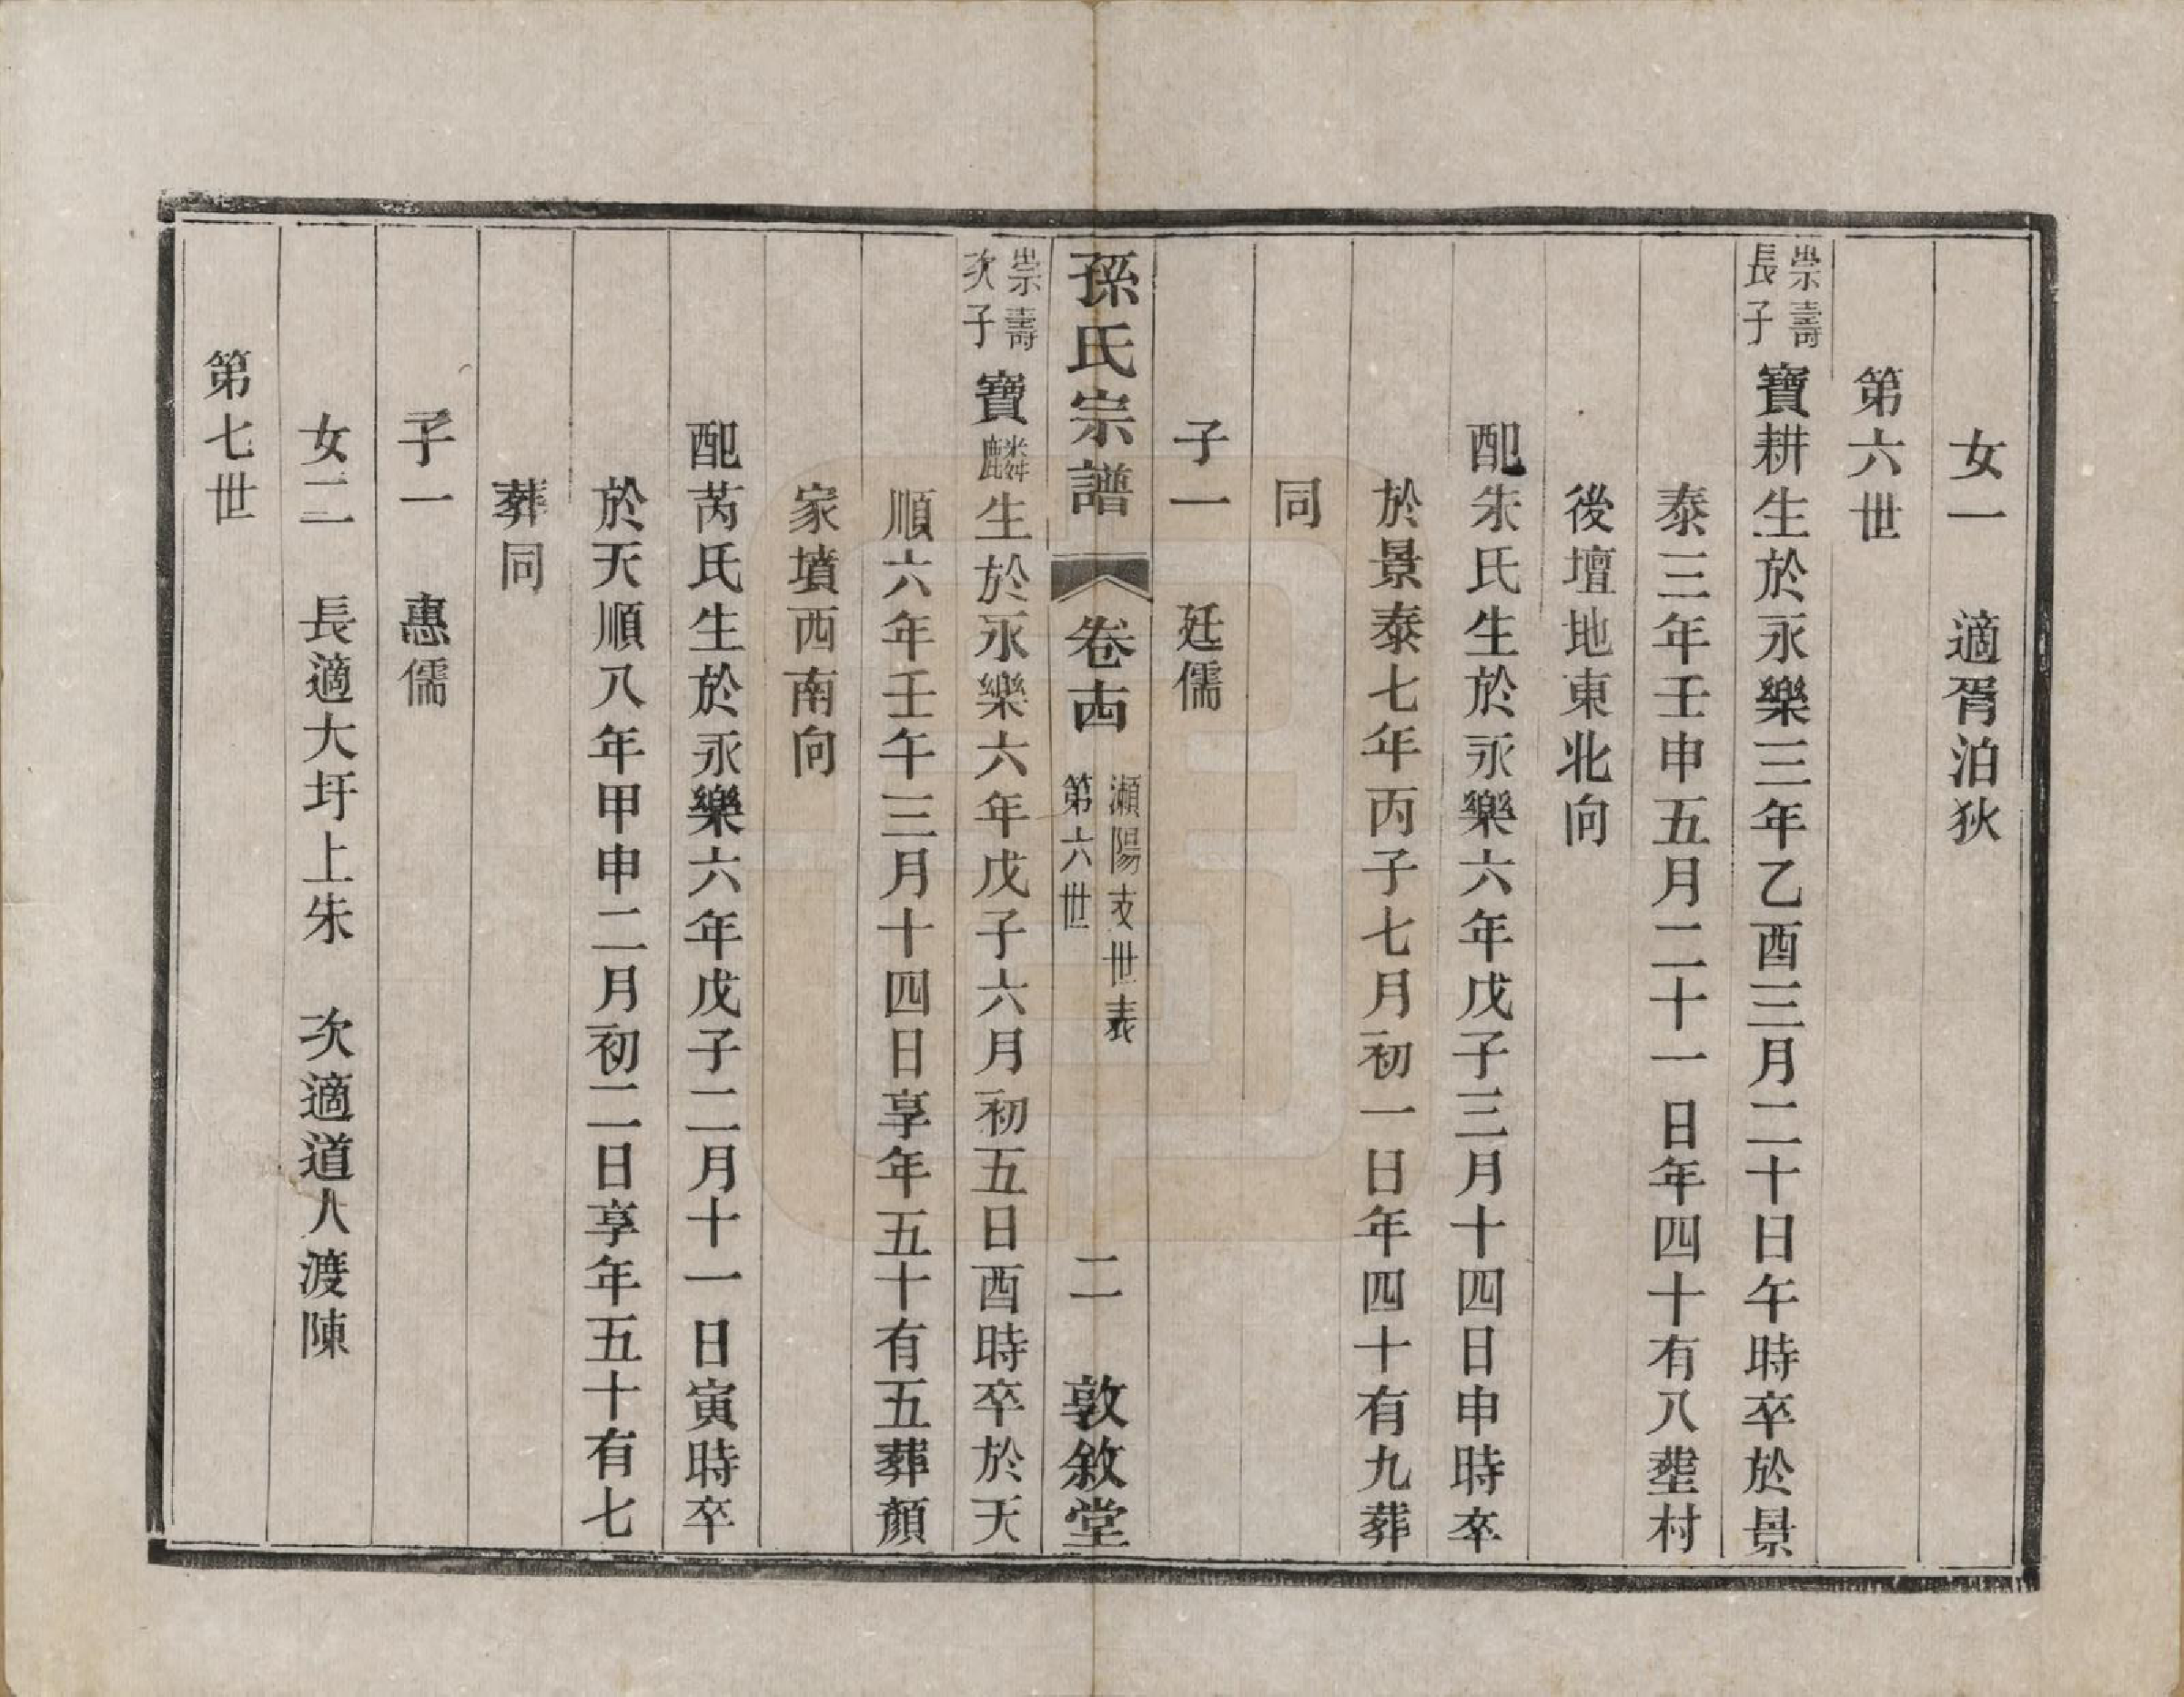 女一　適胥泊狄
第六世
崇壽長子寶耕生於永樂三年乙酉三月二十日午時卒於景
泰三年壬申五月二十一日年四十有八塟村
後壇地東北向
配朱氏生於永樂六年戊子三月十四日申時卒
於景泰七年丙子七月初一日年四十有九葬
同
子一　廷儒
孫氏宗譜　卷十四　瀨陽支世表　第六世　二　敦敘堂
崇壽次子寶麟生於永樂六年戊子六月初五日酉時卒於天
順六年壬午三月十四日享年五十有五葬顏
家墳西南向
配芮氏生於永樂六年戊子二月十一日寅時卒
於天順八年甲申二月初二日享年五十有七
葬同
子一　惠儒
女二　長適大圩上朱　次適道人渡陳
第七世